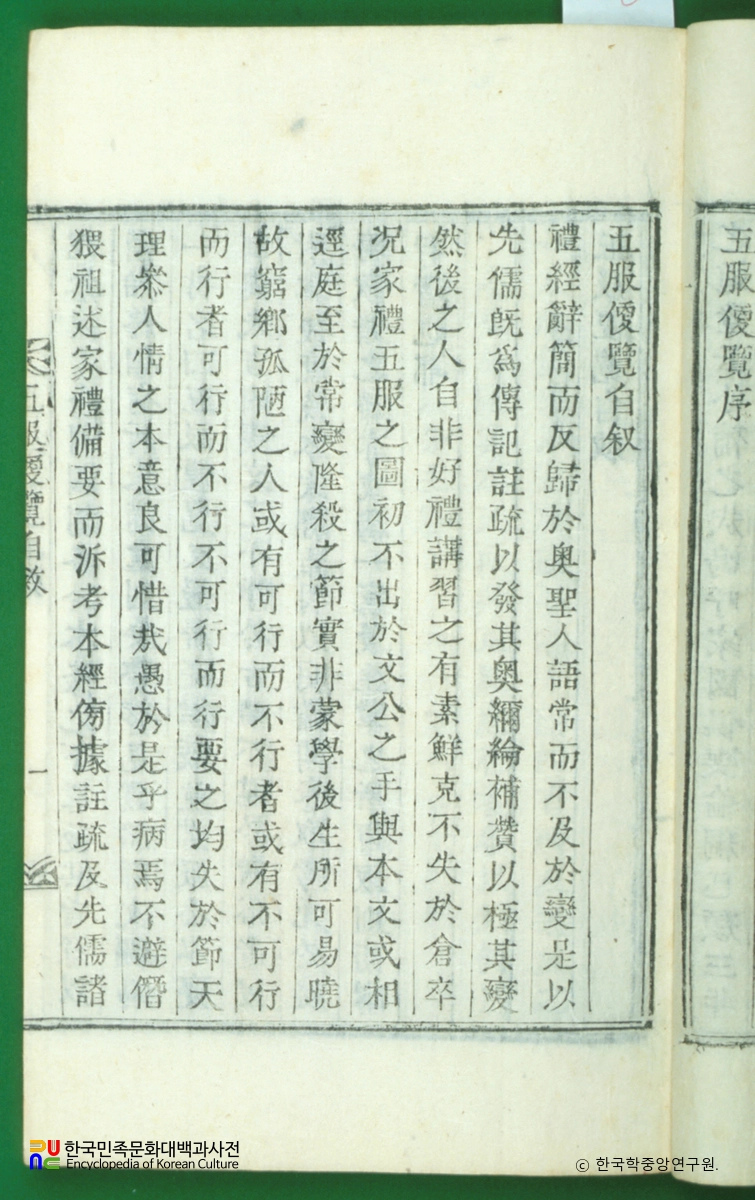 五服便覽序
五服便覽自叙
禮經辭簡而反歸於奧聖人語常而不及於變是以
先儒旣爲傳記註疏以發其奧彌綸補贊以極其變
然後之人自非好禮講習之有素鮮克不失於倉卒
况家禮五服之圖初不出於文公之手與本文或相
逕庭至於常變隆殺之節實非蒙學後生所可易曉
故窮鄉孤陋之人或有可行而不行者或有不可行
而行者可行而不行不可行而行要之均失於節天
理叅人情之本意良可惜㢤愚於是乎病焉不避僭
猥祖述家禮備要而泝考本經傍據註疏及先儒諸
五服便覽自敘
一
한국민족문화대백과사전
Encyclopedia of Korean Culture
ⓒ 한국학중앙연구원.